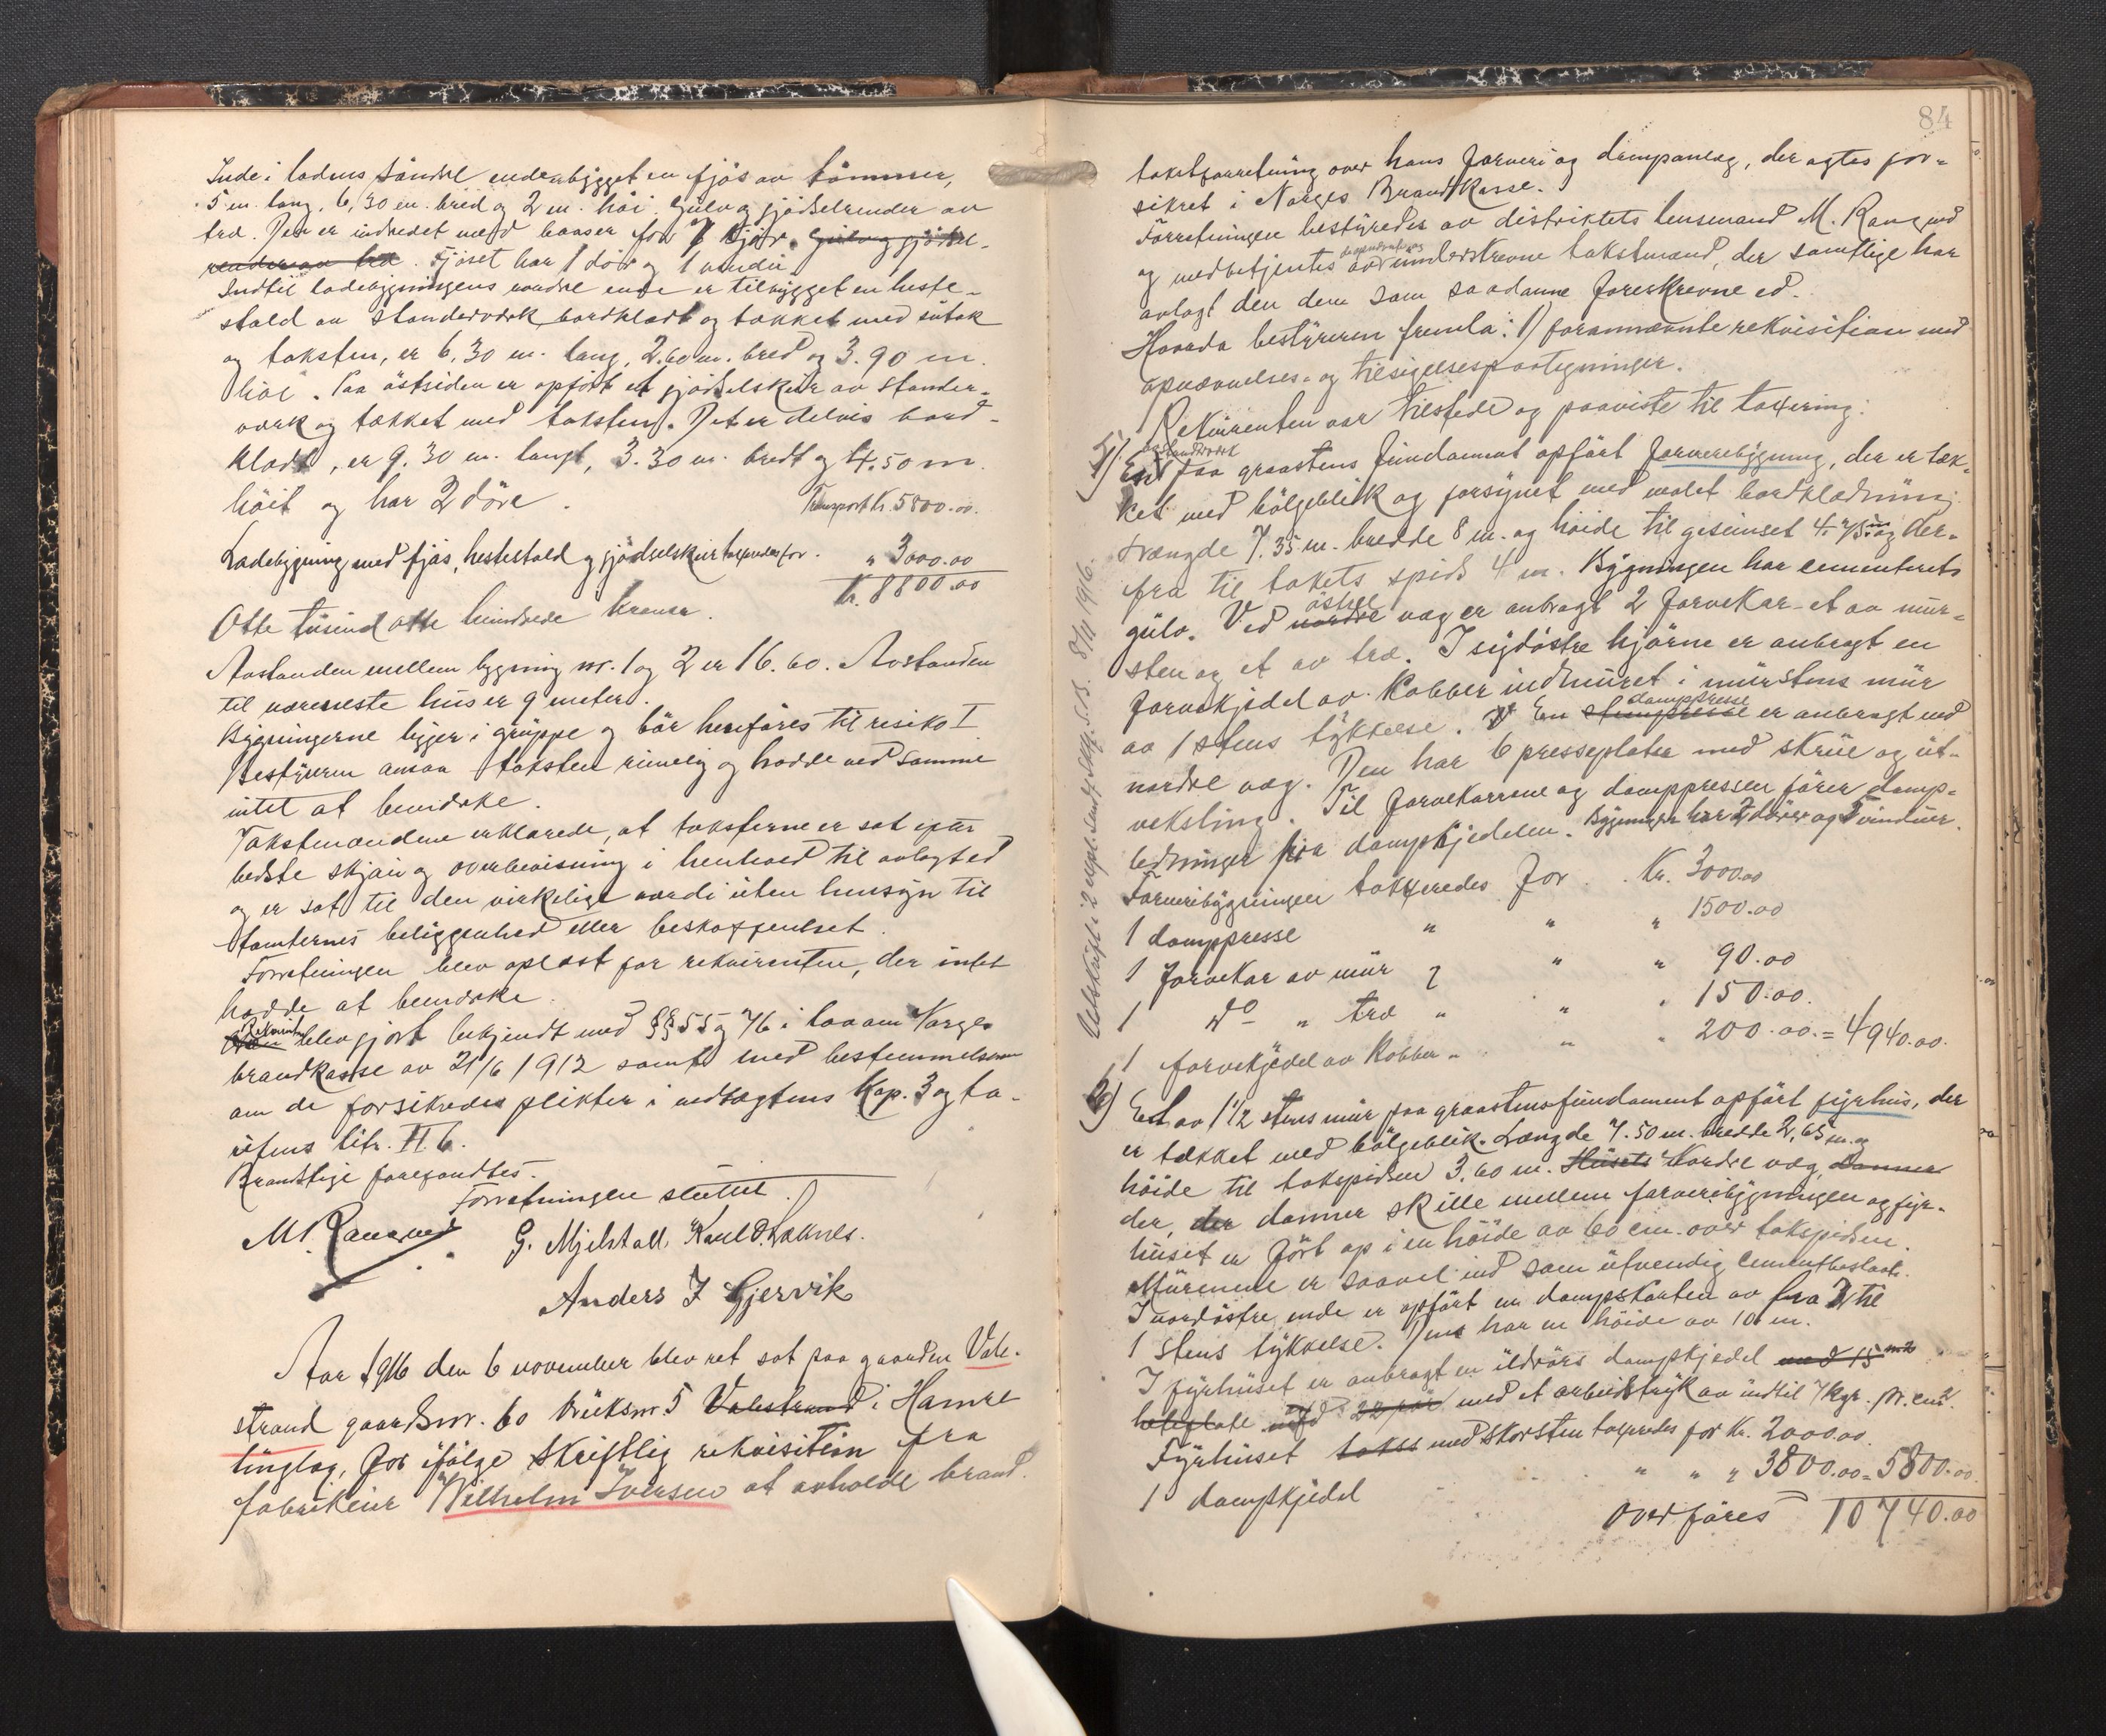 Inde i ladens søndre ende er bygget en fjøs av tømmer,
5 m. lang, 6,30 m. bred og 2 m. høi. Gulv og gjødselrender av
træ. Den er indredet med baaser for 7 kjør. Gulv og gjødsel-
render av træ. Fjøset har 1 dør og 1 vindu.
Indtil ladebygningens nordre ende er tilbygget en heste-
stald av standerværk bordklædt og tækket med sutak
og taksten, er 6,30 m. lang, 2.60 m. bred og 3.90 m.
høi. Paa østsiden er opført et gjødselskur av stander-
værk og tækket med taksten. Det er delvis bord-
klædt, er 9.30 m. langt, 3.30 m. bredt og 4.50 m.
høit og har 2 døre.
Transport Kr. 5800.00.
Ladebygning med fjøs, hestestald og gjødselskur taxeredes for. " 3000.00
Kr. 8800.00
Otte tusind otte hundrede kroner.
Avstanden mellem bygning nr. 1 og 2 er 16.60. Avstanden
til nærmeste hus er 9 meter.
Bygningerne ligger i gruppe og bør henføres til risiko I
Bestyreren ansaa taksten rimelig og hadde ved samme
intet at bemerke.
Takstmændene erklærede, at taksterne er sat efter
bedste skjøn og overbevisning i henhold til avlagt ed
og er sat til den virkelige værdi uten hensyn til
tomternes beliggenhed eller beskaffenhet.
Forretningen blev oplæst for rekvirenten, der intet
hadde at bemerke.
Rekvirenten blev gjort bekjendt med §§ 55 og 76 i lov om Norges
brandkasse av 21/6 1912 samt med bestemmelserne
om de forsikredes plikter i vedtægtens kap. 3 og ta-
riffens litr. II. 6.
Brandstige forefandtes.
Forretningen sluttet.
M. Rangnes G. Mjelstad, Karl O. Loknes.
Anders I Gjervik
Aar 1916 den 6 november blev ret sat paa gaarden Vale-
strand gaardsnr. 60 bruksnr. 5 Valestrand i Hamre
tinglag, for ifølge skriftlig rekvisition fra
fabrikeier Vilhelm Iversen at avholde brand-
84
takstforretning over hans farveri og dampanlæg, der agtes for-
sikret i Norges Brandkasse.
Forretningen bestyredes av distriktets lensmand M. Rangnes
og medbetjentes av opnævnte og underskrevne takstmænd, der samtlige har
avlagt den dem som saadanne foreskrevne ed.
Hvorda bestyreren fremla: 1) forannævnte rekvisition med
opnævnelses- og tilsigelsespaategninger.
Rekvirenten var tilstede og paaviste til taxering:
av standerværk
1) Et paa graastens fundament opført farveribygning, der er tæk-
ket med bølgeblik og forsynet med malet bordklædning
Længde 7.35 m. bredde 8 m. og høide til gesimset 4.75 m og der-
fra til takets spids 4 m. Bygningen har cementerets
gulv. Ved nordre østre væg er anbragt 2 farvekar - et av mur-
sten og et av træ. I sydøstre hjørne er anbragt en
farvekjedel av kobber indmuret i murstens mur
av 1 stens tykkelse. En damppresse er anbragt ved
nordre væg. Den har 6 presseplater med skrue og ut-
veksling. Til farvekarrene og damppressen fører damp-
ledninger fra dampkjedelen. Bygningen har 2 dører og 5 vinduer.
Farveribygningen taxeredes for . . Kr. 3000.00
1 damppresse " " " 1500.00
1 farvekar av mur " " 90.00
1 do " træ " " " 150.00.
1 farvekjedel av kobber " " " 200.00. = 4940.00.
2) Et av 1 1/2 stens mur paa graastensfundament opført fyrhus, der
er tækket med bølgeblik. Længde 7.50 m. bredde 2,65 m. og
høide til takspidsen 3.60 m. Husets Nordre væg, danner
der, der danner skille mellem farveribygningen og fyr-
huset er ført op i en høide av 60 cm. over takspidsen.
Murene er saavel ind som utvendig cementbeslaat.
I nordøstre ende er opført en dampskorsten av fra 2 til
1 stens tykkelse. Den har en høide av 10 m.
I fyrhuset er anbragt en ildrørs dampkjedel med 15 m2
heteflate med et arbeidstryk av indtil 7 kgr. pr. cm2.
Fyrhuset takst med skorsten taxeredes for Kr. 2000.00.
1 dampkjedel " " " 3800.00 = 5800.00.
Overføres 10740.00
Utskrift i 2 expl. sendt 8/11 1916.